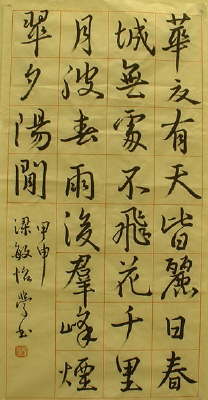 華夏有天皆麗日春
城無處不飛花千里
月波春雨後羣峰煙
翠夕陽間
甲申
梁敏怡學書